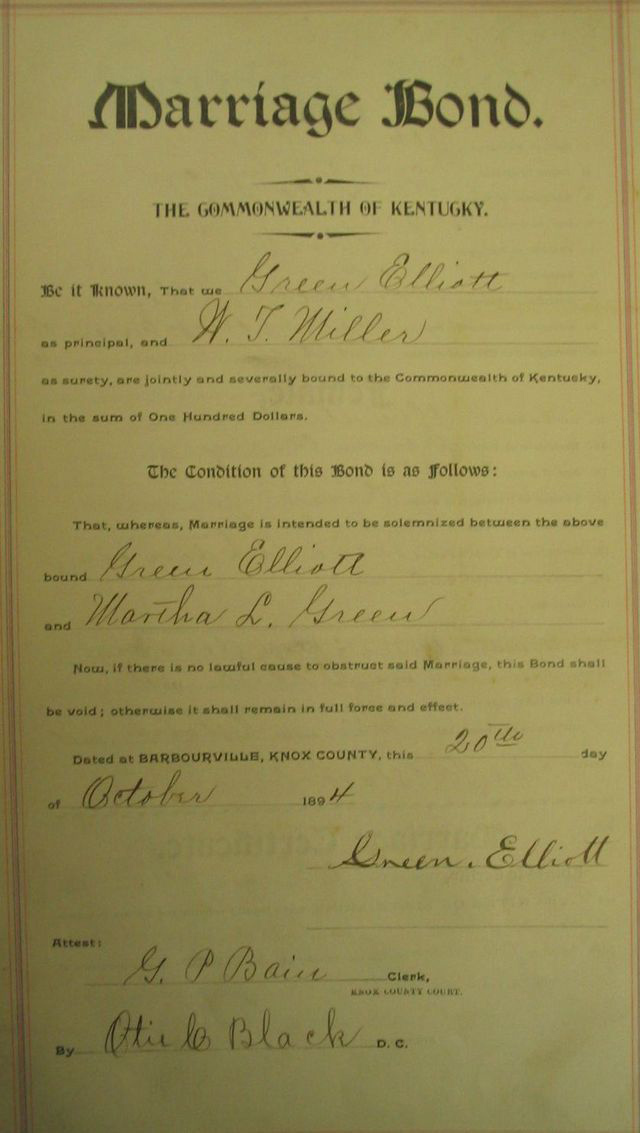 Marriage Bond.
THE COMMONWEALTH OF KENTUCKY.
Be it Known, That we Green Elliott
as principal, and W. T. Miller
as surety, are jointly and severally bound to the Commonwealth of Kentucky,
in the sum of One Hundred Dollars.
The Condition of this Bond is as Follows:
That, whereas, Marriage is intended to be solemnized between the above
bound Green Elliott
and Martha L. Green
Now, if there is no lawful cause to obstruct said Marriage, this Bond shall
be void; otherwise it shall remain in full force and effect.
Dated at BARBOURVILLE, KNOX COUNTY, this 20th day
of October 1894
Green. Elliott
Attest:
G. P Bain Clerk,
KNOX COUNTY COURT.
By Black D. C.